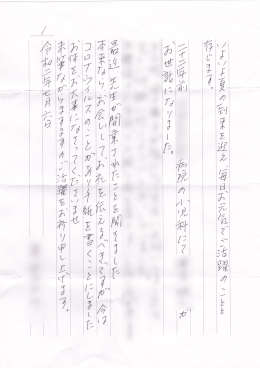 いよいよ夏の到来を迎え、毎日お元気でご活躍のことと
存じます。
二十二年前 病院の小児科にて が
お世話になりました。
最近、先生が開業されたことを聞きました
本来なら、お会いしてお礼を伝えるべきですが今は
コロナウイルスのことがあり手紙を書くことにしました
お体をお大事になさってくださいませ
末筆ながらますますのご活躍をお祈り申し上げます。
令和二年 月 日